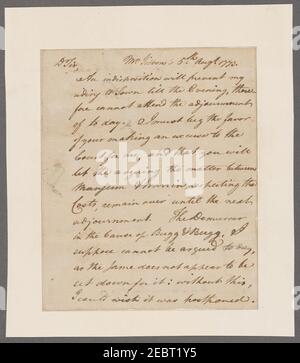 Dr Sir, Mr 5th Augt 1773.
An indisposition will prevent my
riding to Town till the Evening, there-
fore cannot attend the adjournment
of to day. I must beg the favor
of your making an excuse to the
Court for me, and that you will
let the arguing the matter between
Mangum & respecting the
Costs remain over until the next
adjournment. The Demurrer
in the Cause of Bugg & Bugg, I
suppose cannot be argued to day,
as the same does not appear to be
set down for it: without this,
I could wish it was postponed.
alamy
Image ID: 2EBT1Y5
www.alamy.com